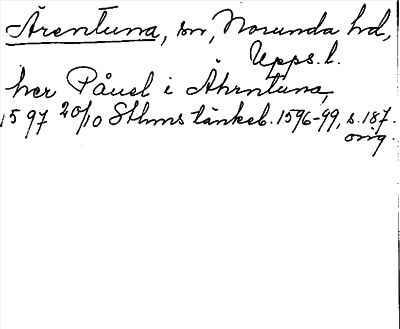 Ärentuna, sn, Norunda hd,
Upps. l.
her Påuel i Åhrntuna,
1597 20/10 Sthms tänkeb. 1596-99, s. 187.
orig.